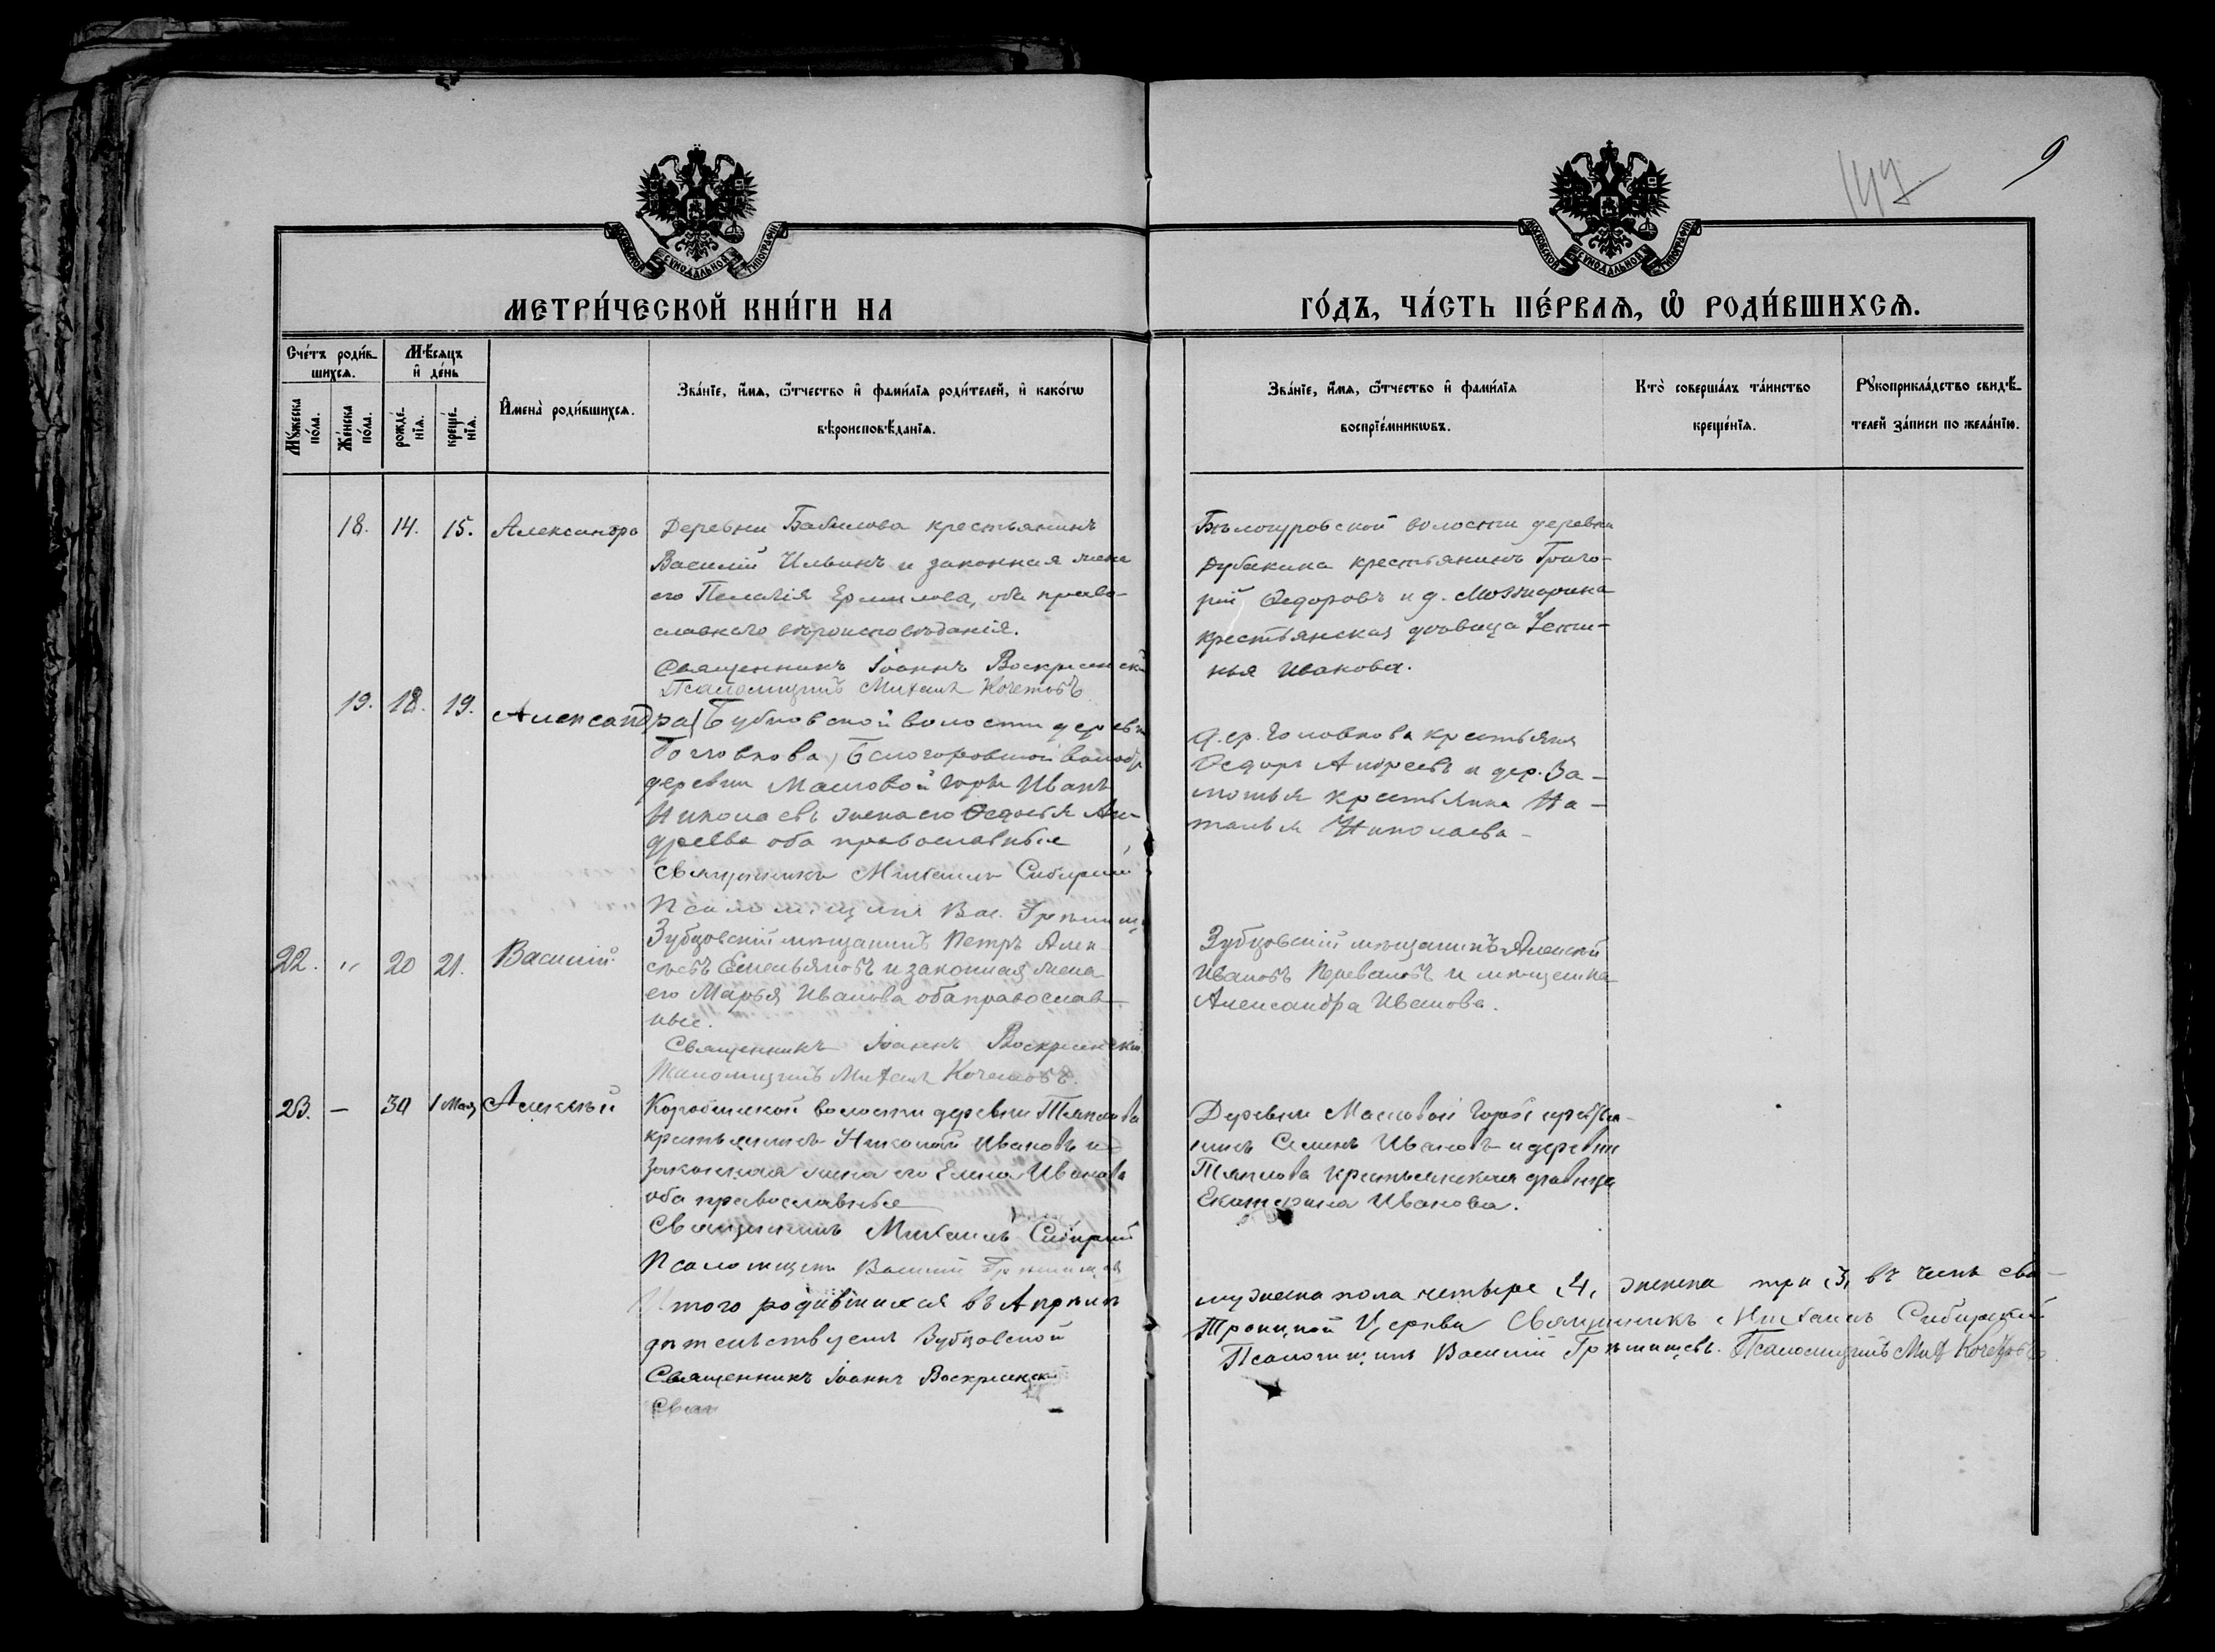 147
9
МОСКОВСКОЙ СѴНОДАЛЬНОЙ ТИПОГРАФІИ
МОСКОВСКОЙ СѴНОДАЛЬНОЙ ТИПОГРАФІИ
МЕТРИ́ЧЕСКОЙ КНИ́ГИ НА
ГО́ДЪ, ЧА́СТЬ ПЕ́РВАѦ, Ѡ҆ РОДИ́ВШИХСѦ.
Сче́тъ роди́в-
шихсѧ.
Мѣ́сѧцъ
и҆ де́нь
Мꙋ́жеска по́ла.
Же́нска по́ла.
рожде́-нїѧ.
креще́-нїѧ.
И҆мена̀ роди́вшихсѧ.
Зва́нїе, и҆́мѧ, ѻ҆́тчество и҆ фами́лїѧ роди́телей, и҆ како́гѡ
вѣроисповѣ́данїѧ.
Зва́нїе, и҆́мѧ, ѻ҆́тчество и҆ фами́лїѧ
воспрїе́мникѡвъ.
Кто̀ соверша́лъ та́инство
креще́нїѧ.
Рꙋкоприкла́дство свидѣ́-
телей за́писи по жела́нїю.
18. 14. 15. Александра
Деревни Бабилова крестьянинъ
Василій Ильинъ и законная жена
его Пелагія Ермилова, оба право-
славнаго вѣроисповѣданія.
Священникъ Іоаннъ Воскресенскій
Псаломщикъ Михаилъ Кочетовъ
Бѣлогуровской волости деревни
Рубакина крестьянинъ Григо-
рій Ѳедоровъ и д.
крестьянская дѣвица
Иванова.
19. 18. 19. Александра
Бубновской волости деревни
Головкова,
деревни Масловой Горы Иванъ
Николаевъ жена его Ѳедосья Ан-
дреева оба православные
Священникъ Михаилъ Сибирскій
Псаломщикъ Вас.
Дер. Головкова крестьянинъ
Ѳедоръ Андреевъ и дер. За-
мотья крестьянка На-
талья Николаева
22. " 20 21. Василій
Зубцовскій мѣщанинъ Петръ Алек-
сѣевъ Емельяновъ и законная жена
его Марья Иванова оба православ-
ные.
Священникъ Іоаннъ Воскресенскій
Псаломщикъ Михаилъ Кочетовъ.
Зубцовскій мѣщанинъ Алексѣй
Ивановъ и мѣщанка
Александра Иванова.
23. — 30 1 Мая Алексѣй
волости деревни Тяплова
крестьянинъ Николай Ивановъ и
законная жена его Елена Иванова
оба православные
Священникъ Михаилъ Сибирскій
Псаломщикъ Василій
Деревни Масловой Горы крестья-
нинъ Семенъ Ивановъ и деревни
Тяплова крестьянская дѣвица
Екатерина Иванова.
Итого родившихся въ Апрѣлѣ
мужеска пола четыре (4), женска три (3), въ чемъ сви-
дѣтельствуемъ Зубцовской
Троицкой Церкви Священникъ Михаилъ Сибирскій
Священникъ Іоаннъ Воскресенскій
Псаломщикъ Василій Псаломщикъ Мих Кочетовъ